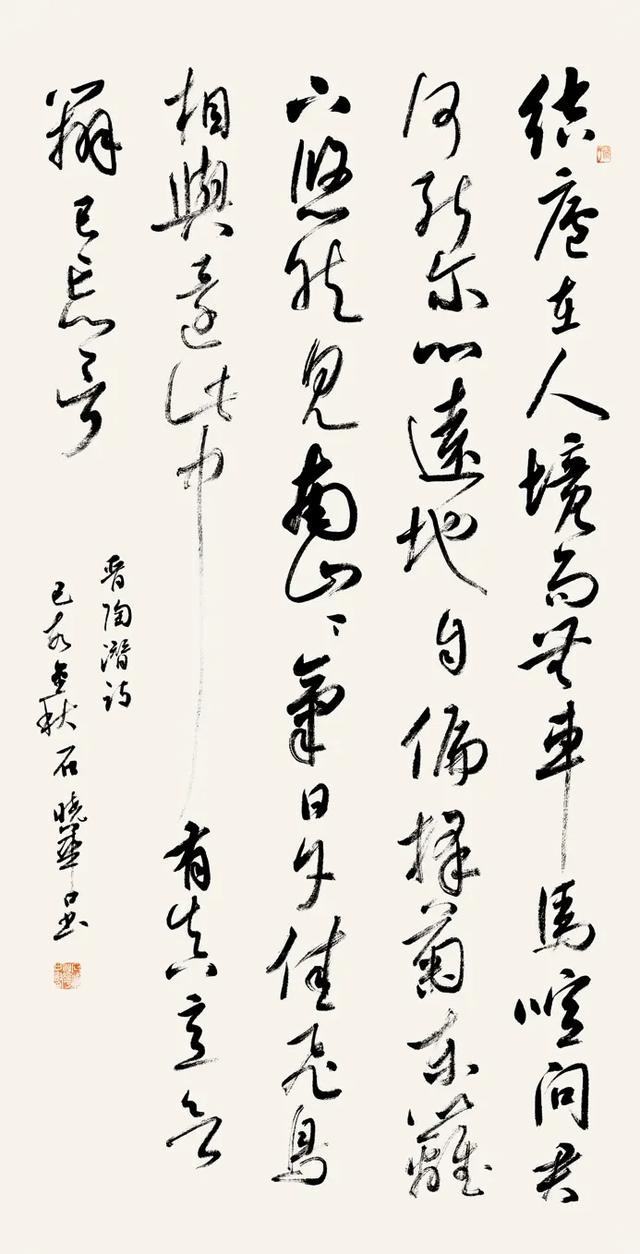 結廬在人境而無車馬喧問君
何能尔心遠地自偏採菊東籬
下悠然見南山〻氣日夕佳飛鳥
相與還此中有真意欲
辨已忘言
晋陶潛詩
己亥金秋石曉華書